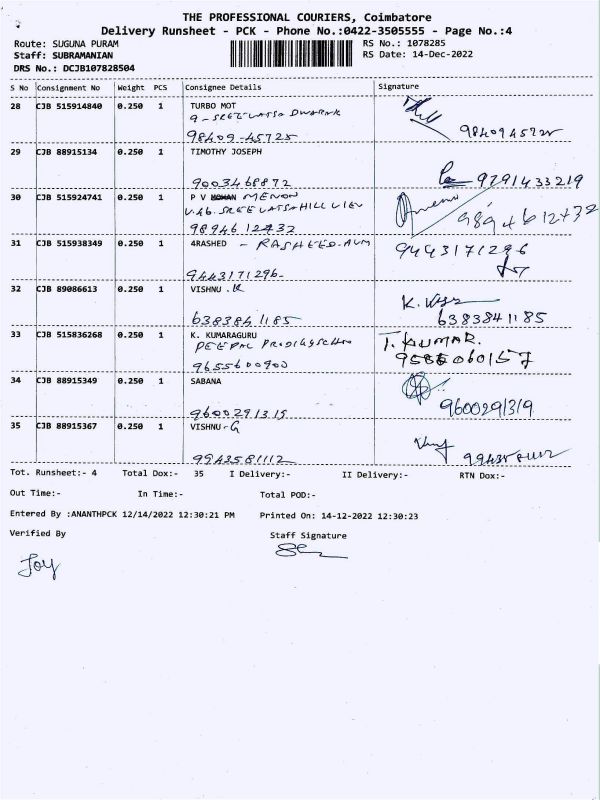 THE PROFESSIONAL COURIERS, Coimbatore
Delivery Runsheet - PCK - Phone No.:0422-3505555 - Page No.:4
Route: SUGUNA PURAM RS No.: 1078285
Staff: SUBRAMANIAN RS Date: 14-Dec-2022
DRS No.: DCJB107828504
S No Consignment No Weight PCS Consignee Details Signature
28 CJB 515914840 0.250 1 TURBO MOT
9 - SREEVATSA DWARAK
98409-45725 9840945725
29 CJB 88915134 0.250 1 TIMOTHY JOSEPH
9003468872 9791433219
30 CJB 515924741 0.250 1 P V MOHAN MENON
SREEVATSA HILL VIEW
9894612732 9894612732
31 CJB 515938349 0.250 1 4RASHED - RASHEED.AUM 9443171296
9443171296-
32 CJB 89086613 0.250 1 VISHNU .K
6383841185 6383841185
33 CJB 515836268 0.250 1 K. KUMARAGURU T. KUMAR.
PEEPAL
9655600900
34 CJB 88915349 0.250 1 SABANA
9600291319 9600291319
35 CJB 88915367 0.250 1 VISHNU-G
9943581112
Tot. Runsheet:- 4 Total Dox:- 35 I Delivery:- II Delivery:- RTN Dox:-
Out Time:- In Time:- Total POD:-
Entered By :ANANTHPCK 12/14/2022 12:30:21 PM Printed On: 14-12-2022 12:30:23
Verified By Staff Signature
Joy